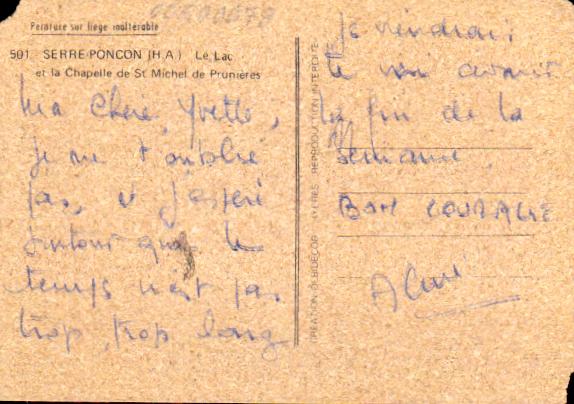 Peinture sur liège inaltérable
501. SERRE-PONCON (H.A.) Le Lac
et la Chapelle de St Michel de Prunières
Ma Chère Yvette,
je ne t'oublie
pas, et j'espère
surtout que le
temps n'est pas
trop, trop long
REPRODUCTION INTERDITE
je viendrai
te voir avant
la fin de la
semaine.
BON COURAGE